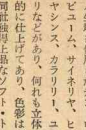 ピユーム、サイネリヤ、ヒ
ヤシンス、カラリリー、ユ
リなどがあり、何れも立体
的に仕上げてあり、色彩は
同社独得上品なソフト・ト